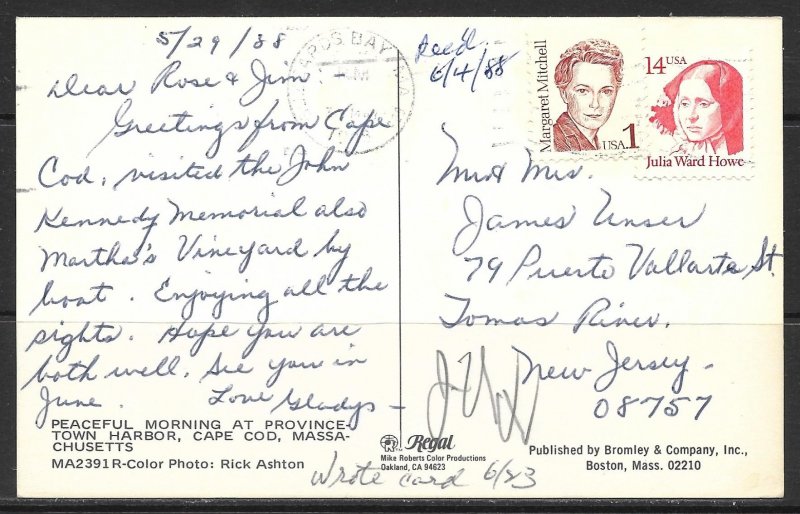 5/29/88
Dear Rose & Jim
Greetings from Cape
Cod, visited the John
Kennedy Memorial also
Martha's Vineyard by
boat. Enjoying all the
sights. Hope you are
both well. See you in
June. Love Gladys -
PEACEFUL MORNING AT PROVINCE-
TOWN HARBOR, CAPE COD, MASSA-
CHUSETTS
MA2391R-Color Photo: Rick Ashton
BAY
Rec'd
6/4/88
Margaret Mitchell
USA 1
14 USA
Julia Ward Howe
Mr & Mrs.
James Unser
79 Puerto Vallarta St.
Tomas River.
New Jersey -
08757
Regal
Mike Roberts Color Productions
Oakland, CA 94623
Published by Bromley & Company, Inc.,
Boston, Mass. 02210
Wrote card 6/23